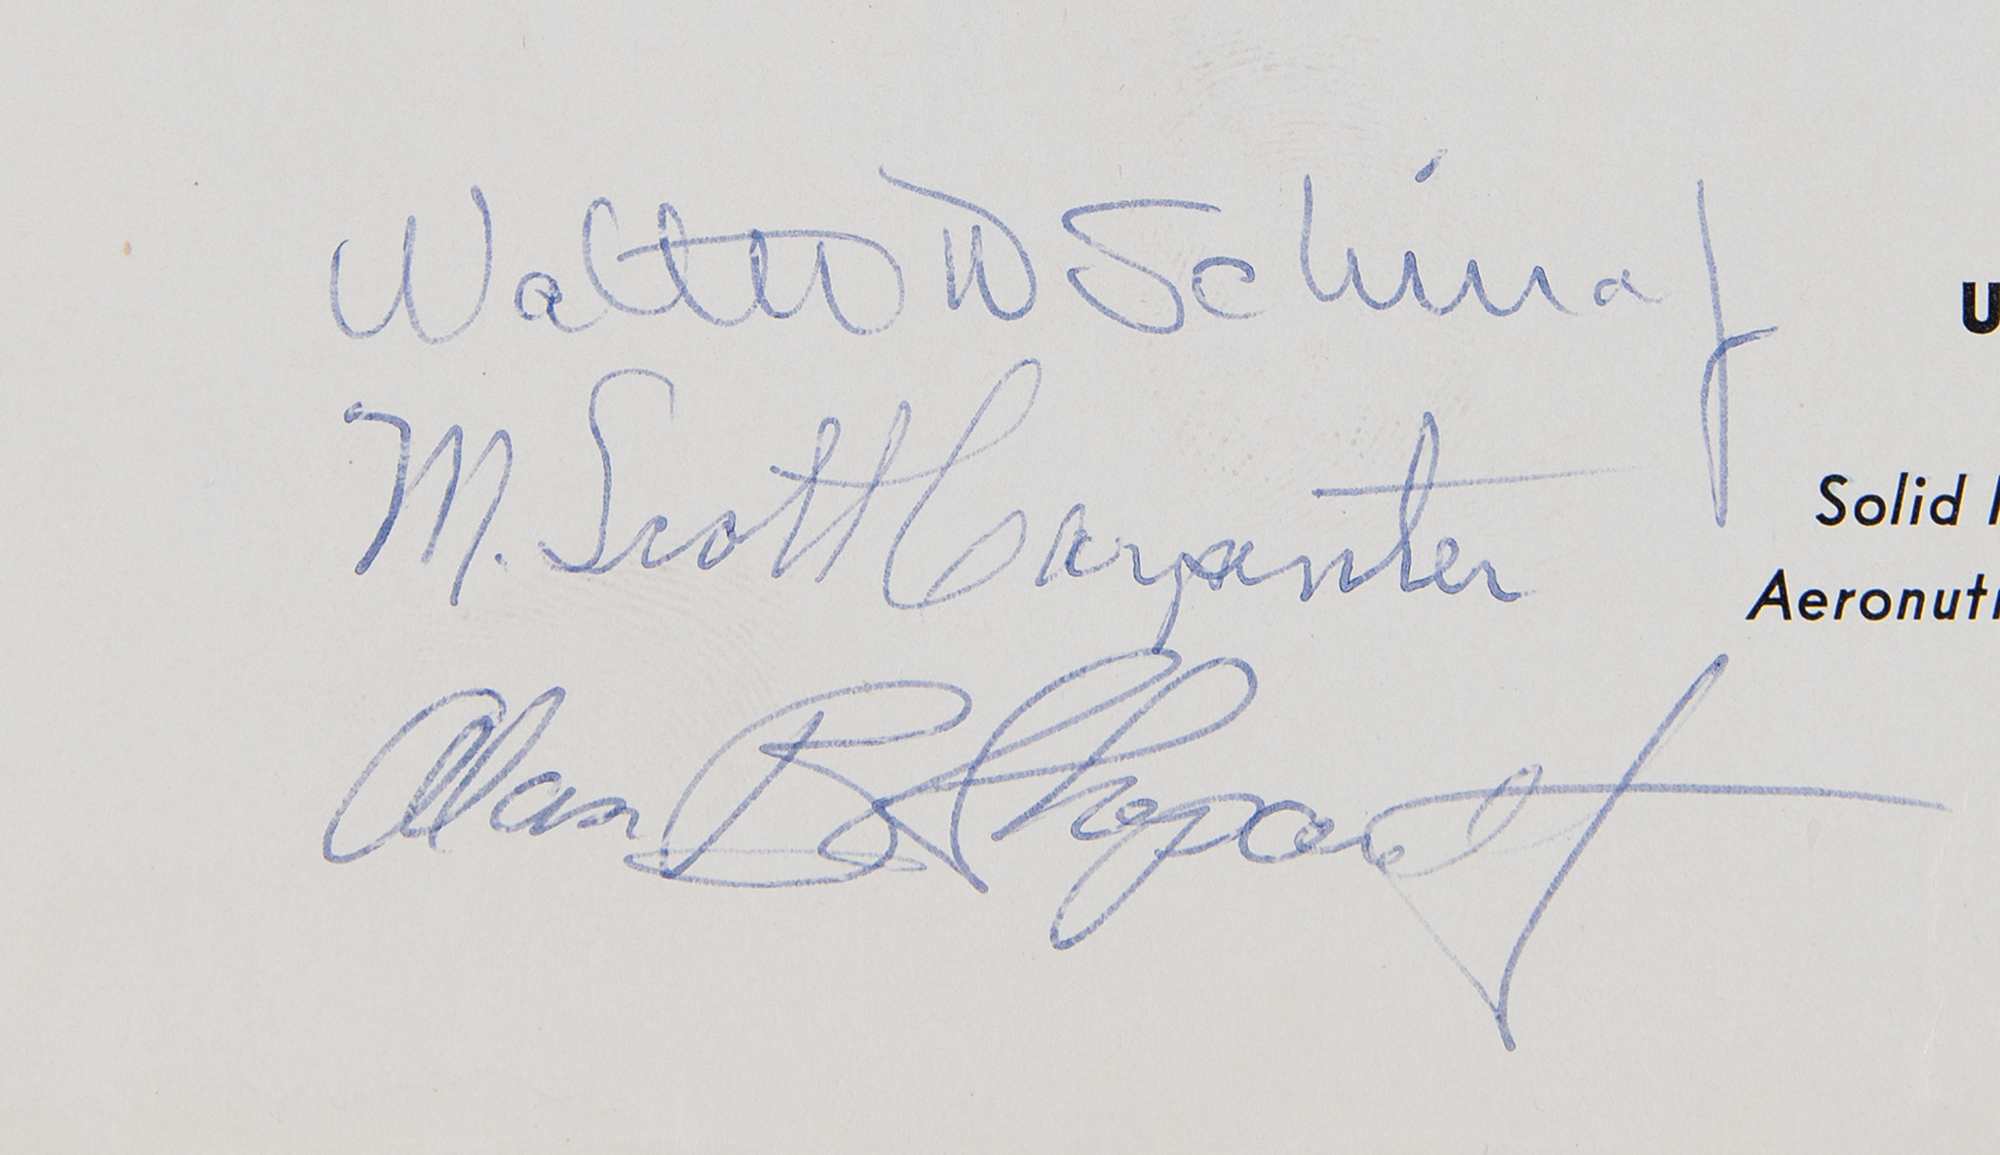 Walter M Schirra Jr
M. Scott Carpenter
Alan B Shepard Jr
U
Solid
Aeronuti